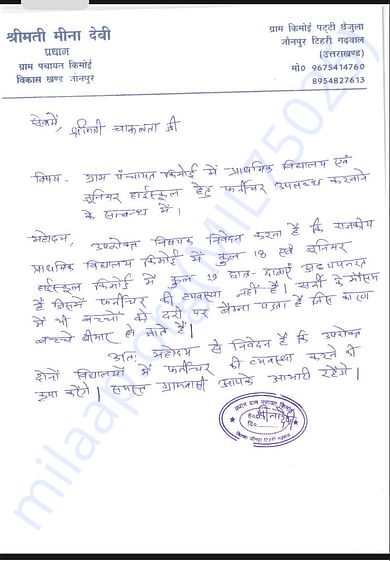 श्रीमती मीना देवी
प्रधान
ग्राम पंचायत किमोई
विकास खण्ड जौनपुर
ग्राम किमोई पट्टी छैजुला
जौनपुर टिहरी गढ़वाल
(उत्तराखण्ड)
मो० 9675414760
8954827613
सेवामें,
श्रीमती जी
विषय - ग्राम पंचायत किमोई में प्राथमिक विद्यालय एवं
जूनियर हाईस्कूल हेतु फर्नीचर उपलब्ध करवाने
के सम्बन्ध में।
महोदय,
उपरोक्त विषयक निवेदन करना है कि राजकीय
प्राथमिक विद्यालय किमोई में कुल 18 एवं जूनियर
हाईस्कूल किमोई में कुल छात्र-छात्राएं अध्ययनरत
हैं जिसमें फर्नीचर की व्यवस्था नहीं है। सर्दी के मौसम
में भी बच्चों को दरी पर बैठना पड़ता है जिस कारण
बच्चे बीमार हो जाते हैं।
अतः महोदय से निवेदन है कि उपरोक्त
दोनों विद्यालयों में फर्नीचर की व्यवस्था करने की
कृपा करेंगे। समस्त ग्रामवासी आपके आभारी रहेंगे।
प्रधान ग्राम पंचायत किमोई
ह०
दि०
विकास जौनपुर टिहरी गढ़वाल